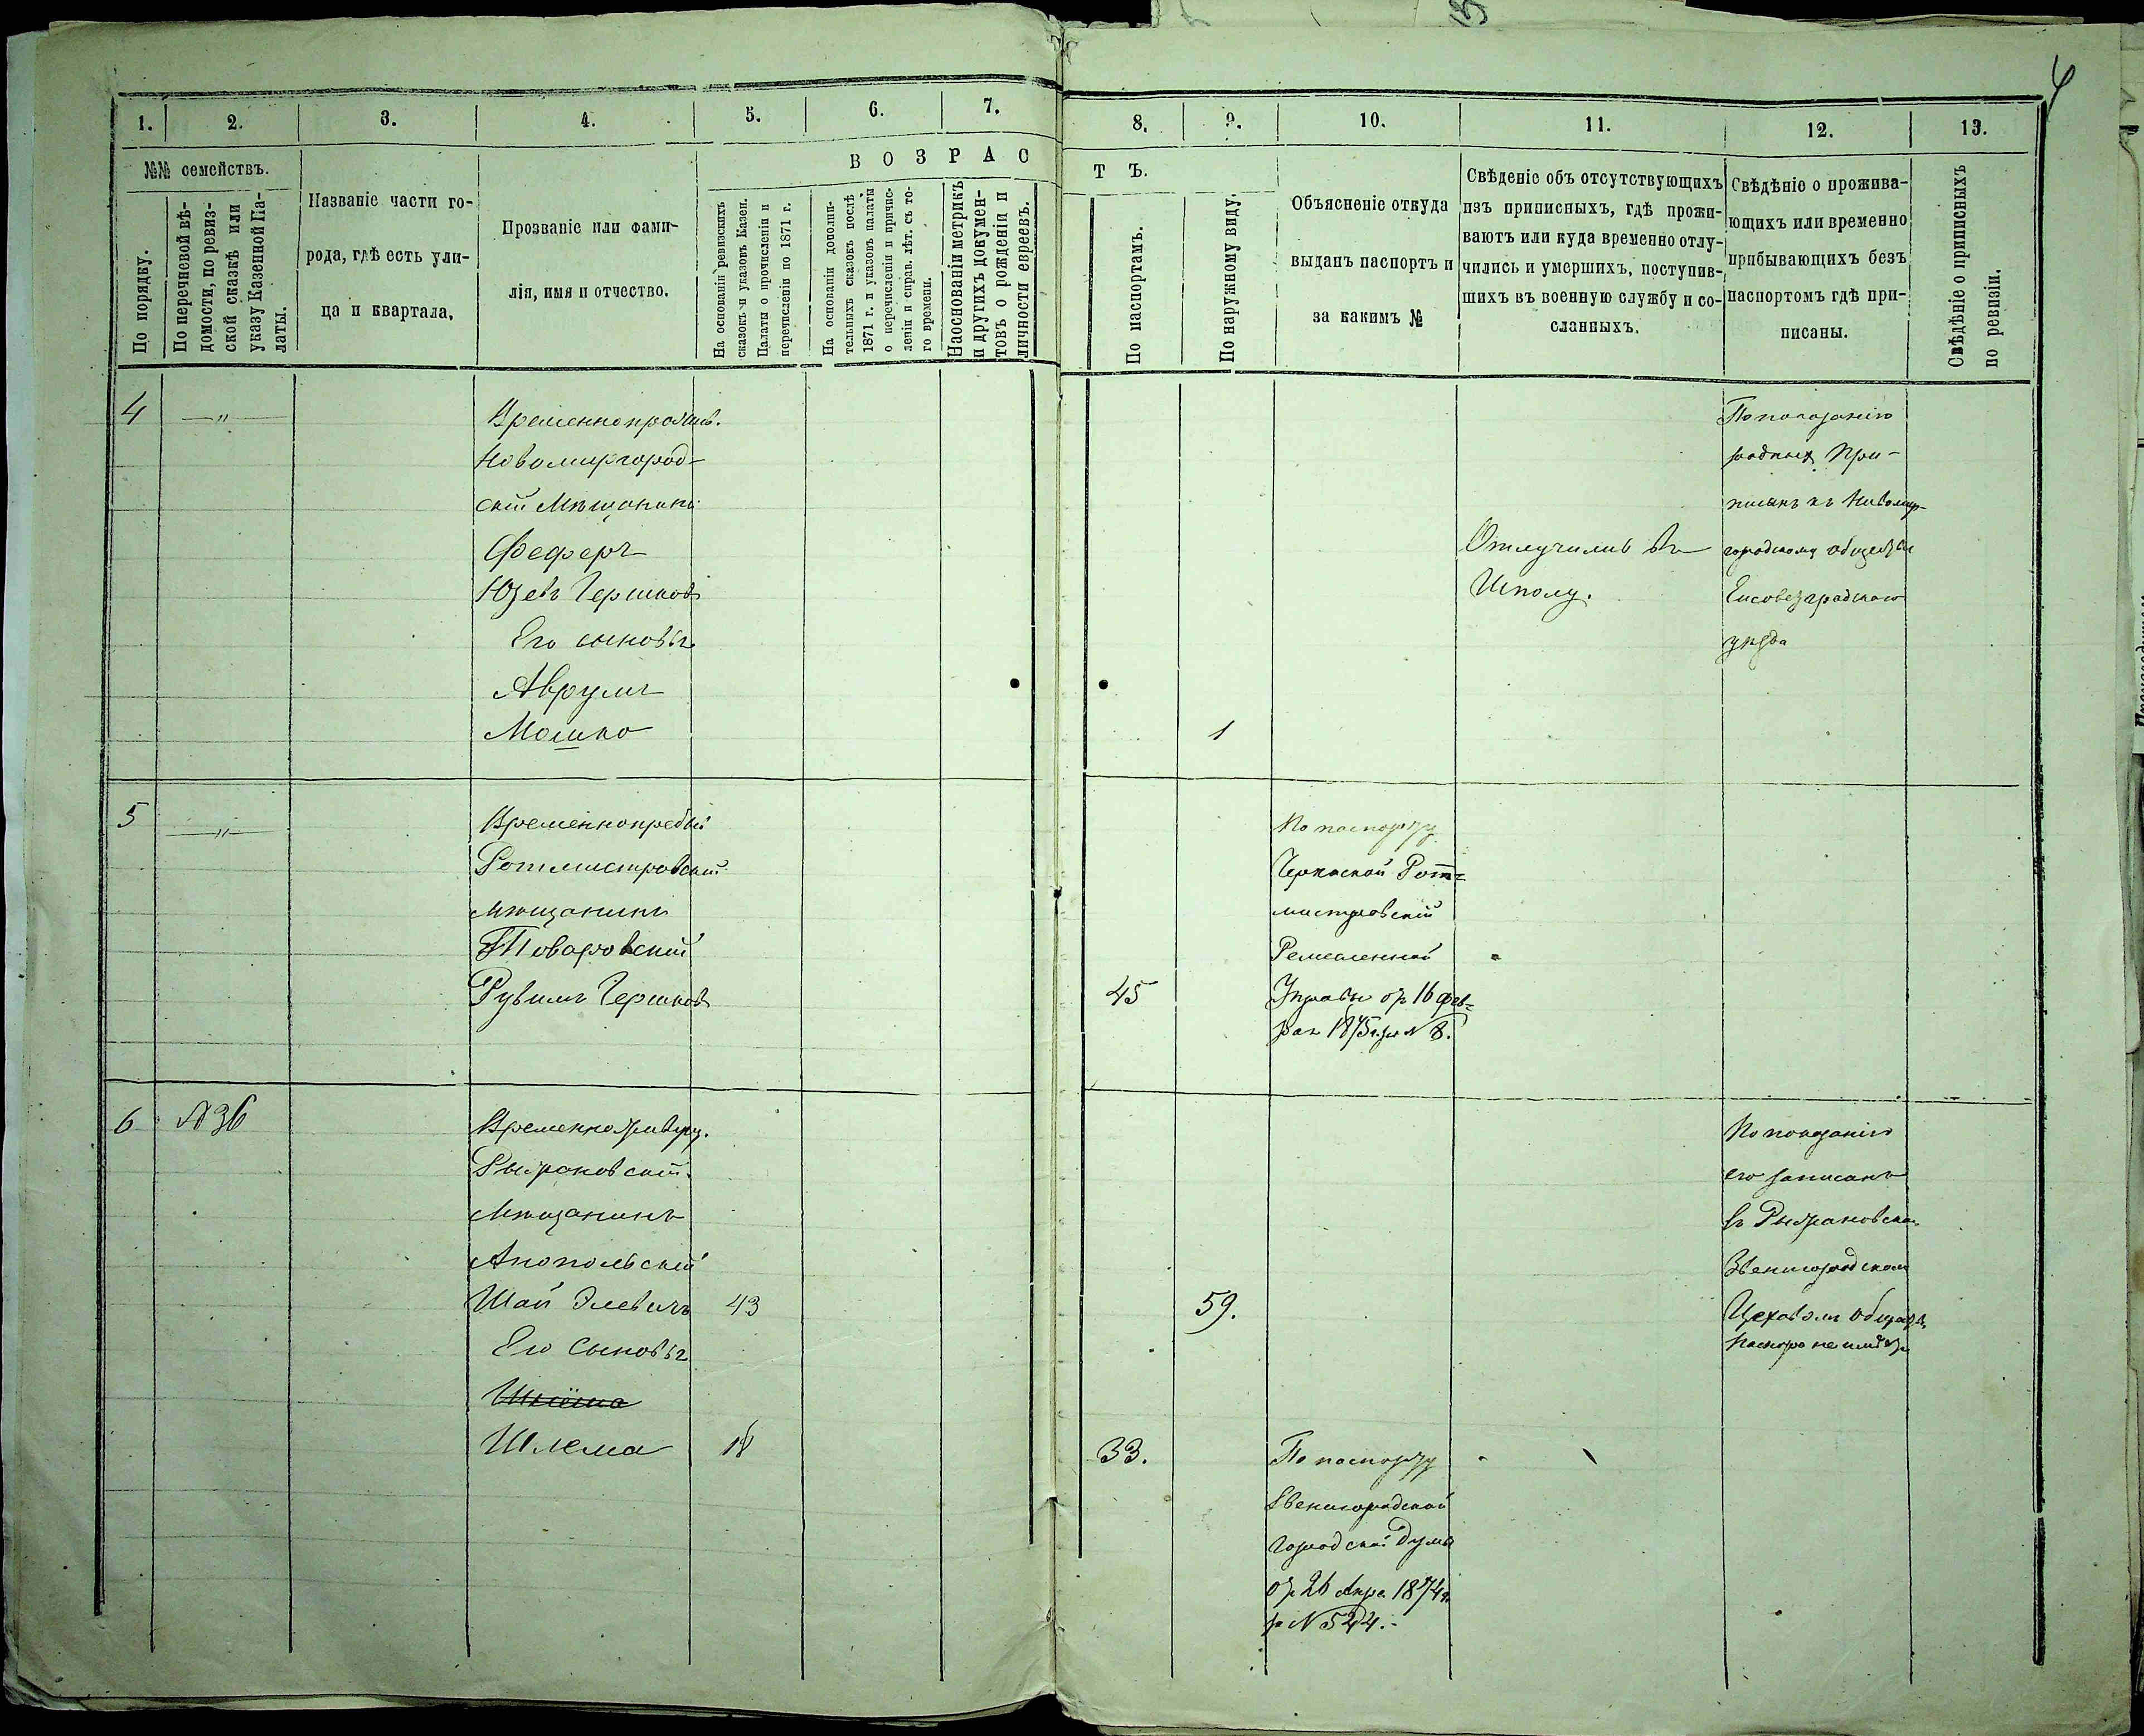 4
1.
2.
3.
4.
5.
6.
7.
8.
9.
10.
11.
12.
13.
№№ семействъ.
По порядку.
По перечневой вѣ-
домости, по ревиз-
ской сказкѣ или
указу Казенной Па-
латы.
Названіе части го-
рода, гдѣ есть ули-
ца и квартала.
Прозваніе или фами-
лія, имя и отчество.
ВОЗРАС
На основаніи ревизскихъ
сказокъ и указовъ Казен.
Палаты о прочисленіи и
перечисленіи по 1871 г.
На основаніи дополни-
тельныхъ сказокъ послѣ
1871 г. и указовъ палаты
о перечисленіи и причис-
леніи и справ. лѣт. съ то-
го времени.
Наоснованіи метрикъ
и другихъ докумен-
товъ о рожденіи и
личности евреевъ.
ТЪ.
По паспортамъ.
По наружному виду.
Объясненіе откуда
выданъ паспортъ и
за какимъ №
Свѣденіе объ отсутствующихъ
изъ приписныхъ, гдѣ прожи-
ваютъ или куда временно отлу-
чились и умершихъ, поступив-
шихъ въ военную службу и со-
сланныхъ.
Свѣдѣніе о прожива-
ющихъ или временно
прибывающихъ безъ
паспортомъ гдѣ при-
писаны.
Свѣдѣніе о приписныхъ
по ревизіи.
4
—"—
Временнопрожив.
Новомиргород-
скій Мѣщанинъ
Феферъ
Юзевъ Гершков
Его сыновья
Аврумъ
Мошко
1
Отлучилив въ
Шполу.
По показанію
родныхъ При-
писанъ къ Новомир-
городскому обществу
Елисаветградскаго
уѣзда
5
—"—
Временнопребыв
Ротмистровскій
мѣщанинъ
Товаровскій
Рувимъ Гершков
45
По паспорту
Черкаской Рот-
мистровскій
Ремесленной
Управы от 16 фев-
рал 1875 г. за № 8.
6
№ 36
Рыжановскій
Мѣщанинъ
Анопольскій
Шай Элевичъ
43
59.
Его Сыновья
Шлема
18
33.
По паспорту
Звенигородской
городской Думы
от 26 Апре 1874 г.
за № 544.-
По показанію
его записанъ
въ Рыжановском
Звенигородском
Цеховом общест.
паспорта не имѣетъ